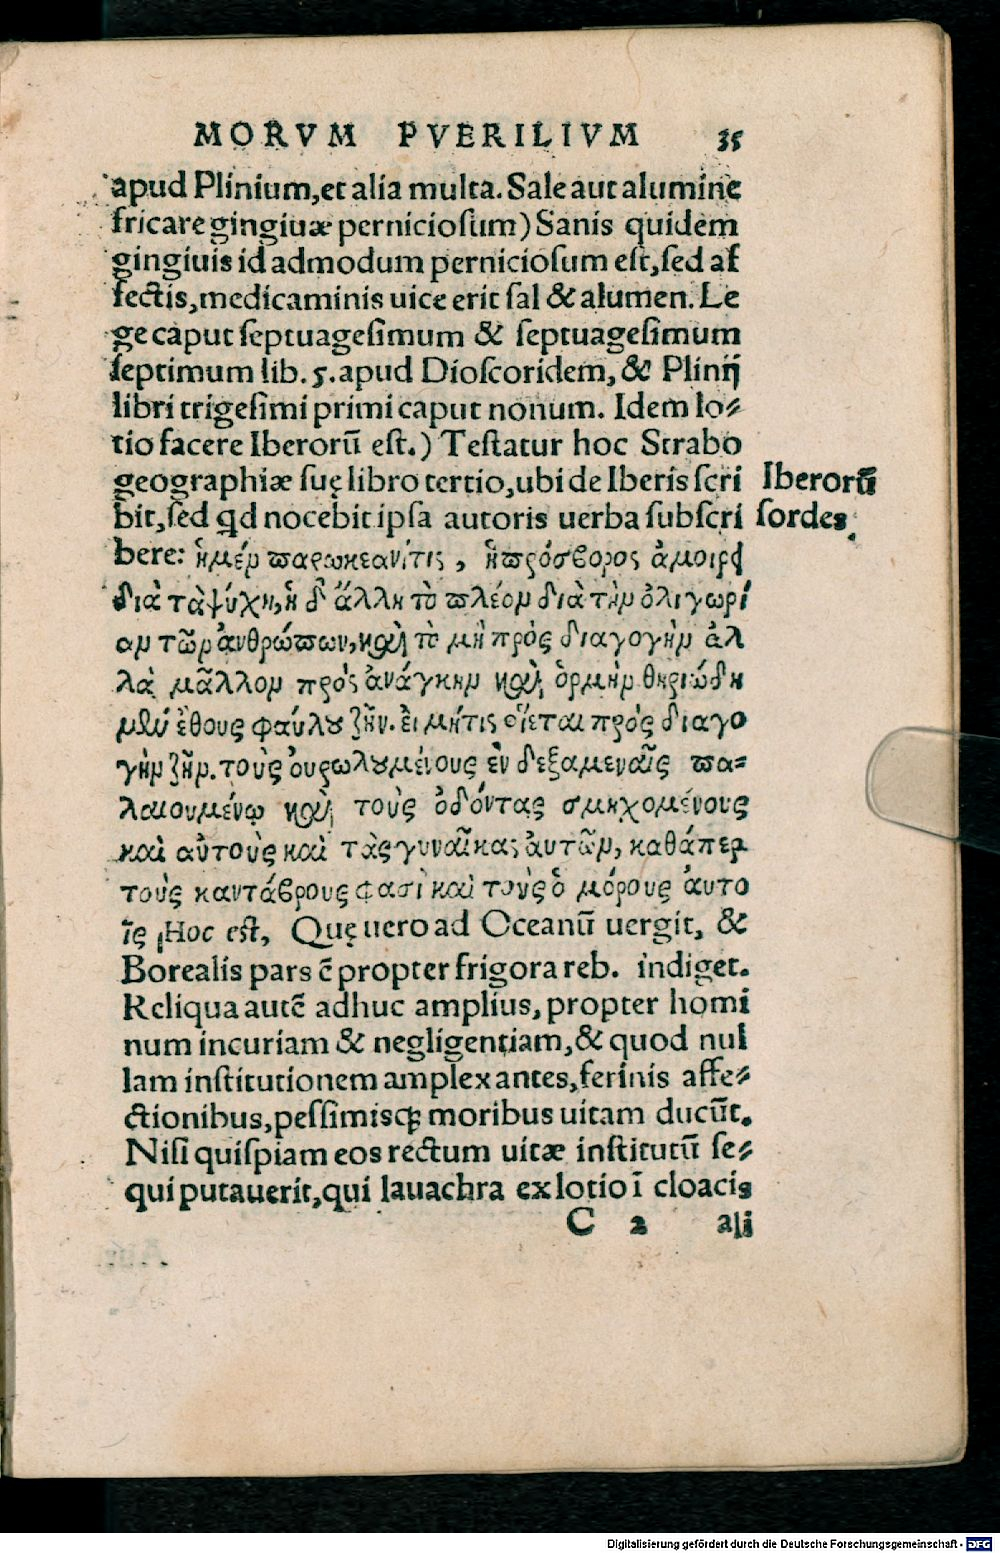 MORVM PVERILIVM 35
apud Plinium, et alia multa. Sale aut alumine
fricare gingiuæ perniciosum) Sanis quidem
gingiuis id admodum perniciosum est, sed af
fectis, medicaminis uice erit sal & alumen. Le
ge caput septuagesimum & septuagesimum
septimum lib. 5. apud Dioscoridem, & Plinij
libri trigesimi primi caput nonum. Idem lo⸗
tio facere Iberorũ est.) Testatur hoc Strabo
geographiæ suę libro tertio, ubi de Iberis scri
Iberorũ
bit, sed qd nocebit ipsa autoris uerba subscri
sordes.
bere: ἡμέν παρωκεανίτις, ἡ πρόσβορος ἀμοιρᾷ
διὰ τὰ ψύχη, ἡ δ' ἄλλη τὸ πλέον διὰ τὴν ὀλιγωρί
αν τῶν ἀνθρώπων, καὶ τὸ μὴ πρὸς διαγογὴν ἀλ
λὰ μᾶλλον πρὸς ἀνάγκην καὶ ὁρμὴν θηριώδη
μετὰ ἔθους φαύλου ζῆν. εἰ μήτις οἴεται πρὸς διαγο
γὴν ζῆν. τοὺς οὐρωλουμένους ἐν δεξαμεναῖς πα⸗
λαιουμένῳ καὶ τοὺς ὀδόντας σμηχομένους
καὶ αὐτοὺς καὶ τὰς γυναῖκας ἀυτῶν, καθάπερ
τοὺς καντάβρους φασὶ καὶ τοὺς ὁ μόρους ἀυτο
ῖς. Hoc est, Quę uero ad Oceanũ uergit, &
Borealis pars ẽ propter frigora reb. indiget.
Reliqua autẽ adhuc amplius, propter homi
num incuriam & negligentiam, & quod nul
lam institutionem amplexantes, ferinis affe⸗
ctionibus, pessimisq; moribus uitam ducũt.
Nisi quispiam eos rectum uitæ institutũ se⸗
qui putauerit, qui lauachra ex lotio ĩ cloacis
C 2 ali
Digitalisierung gefördert durch die Deutsche Forschungsgemeinschaft - DFG